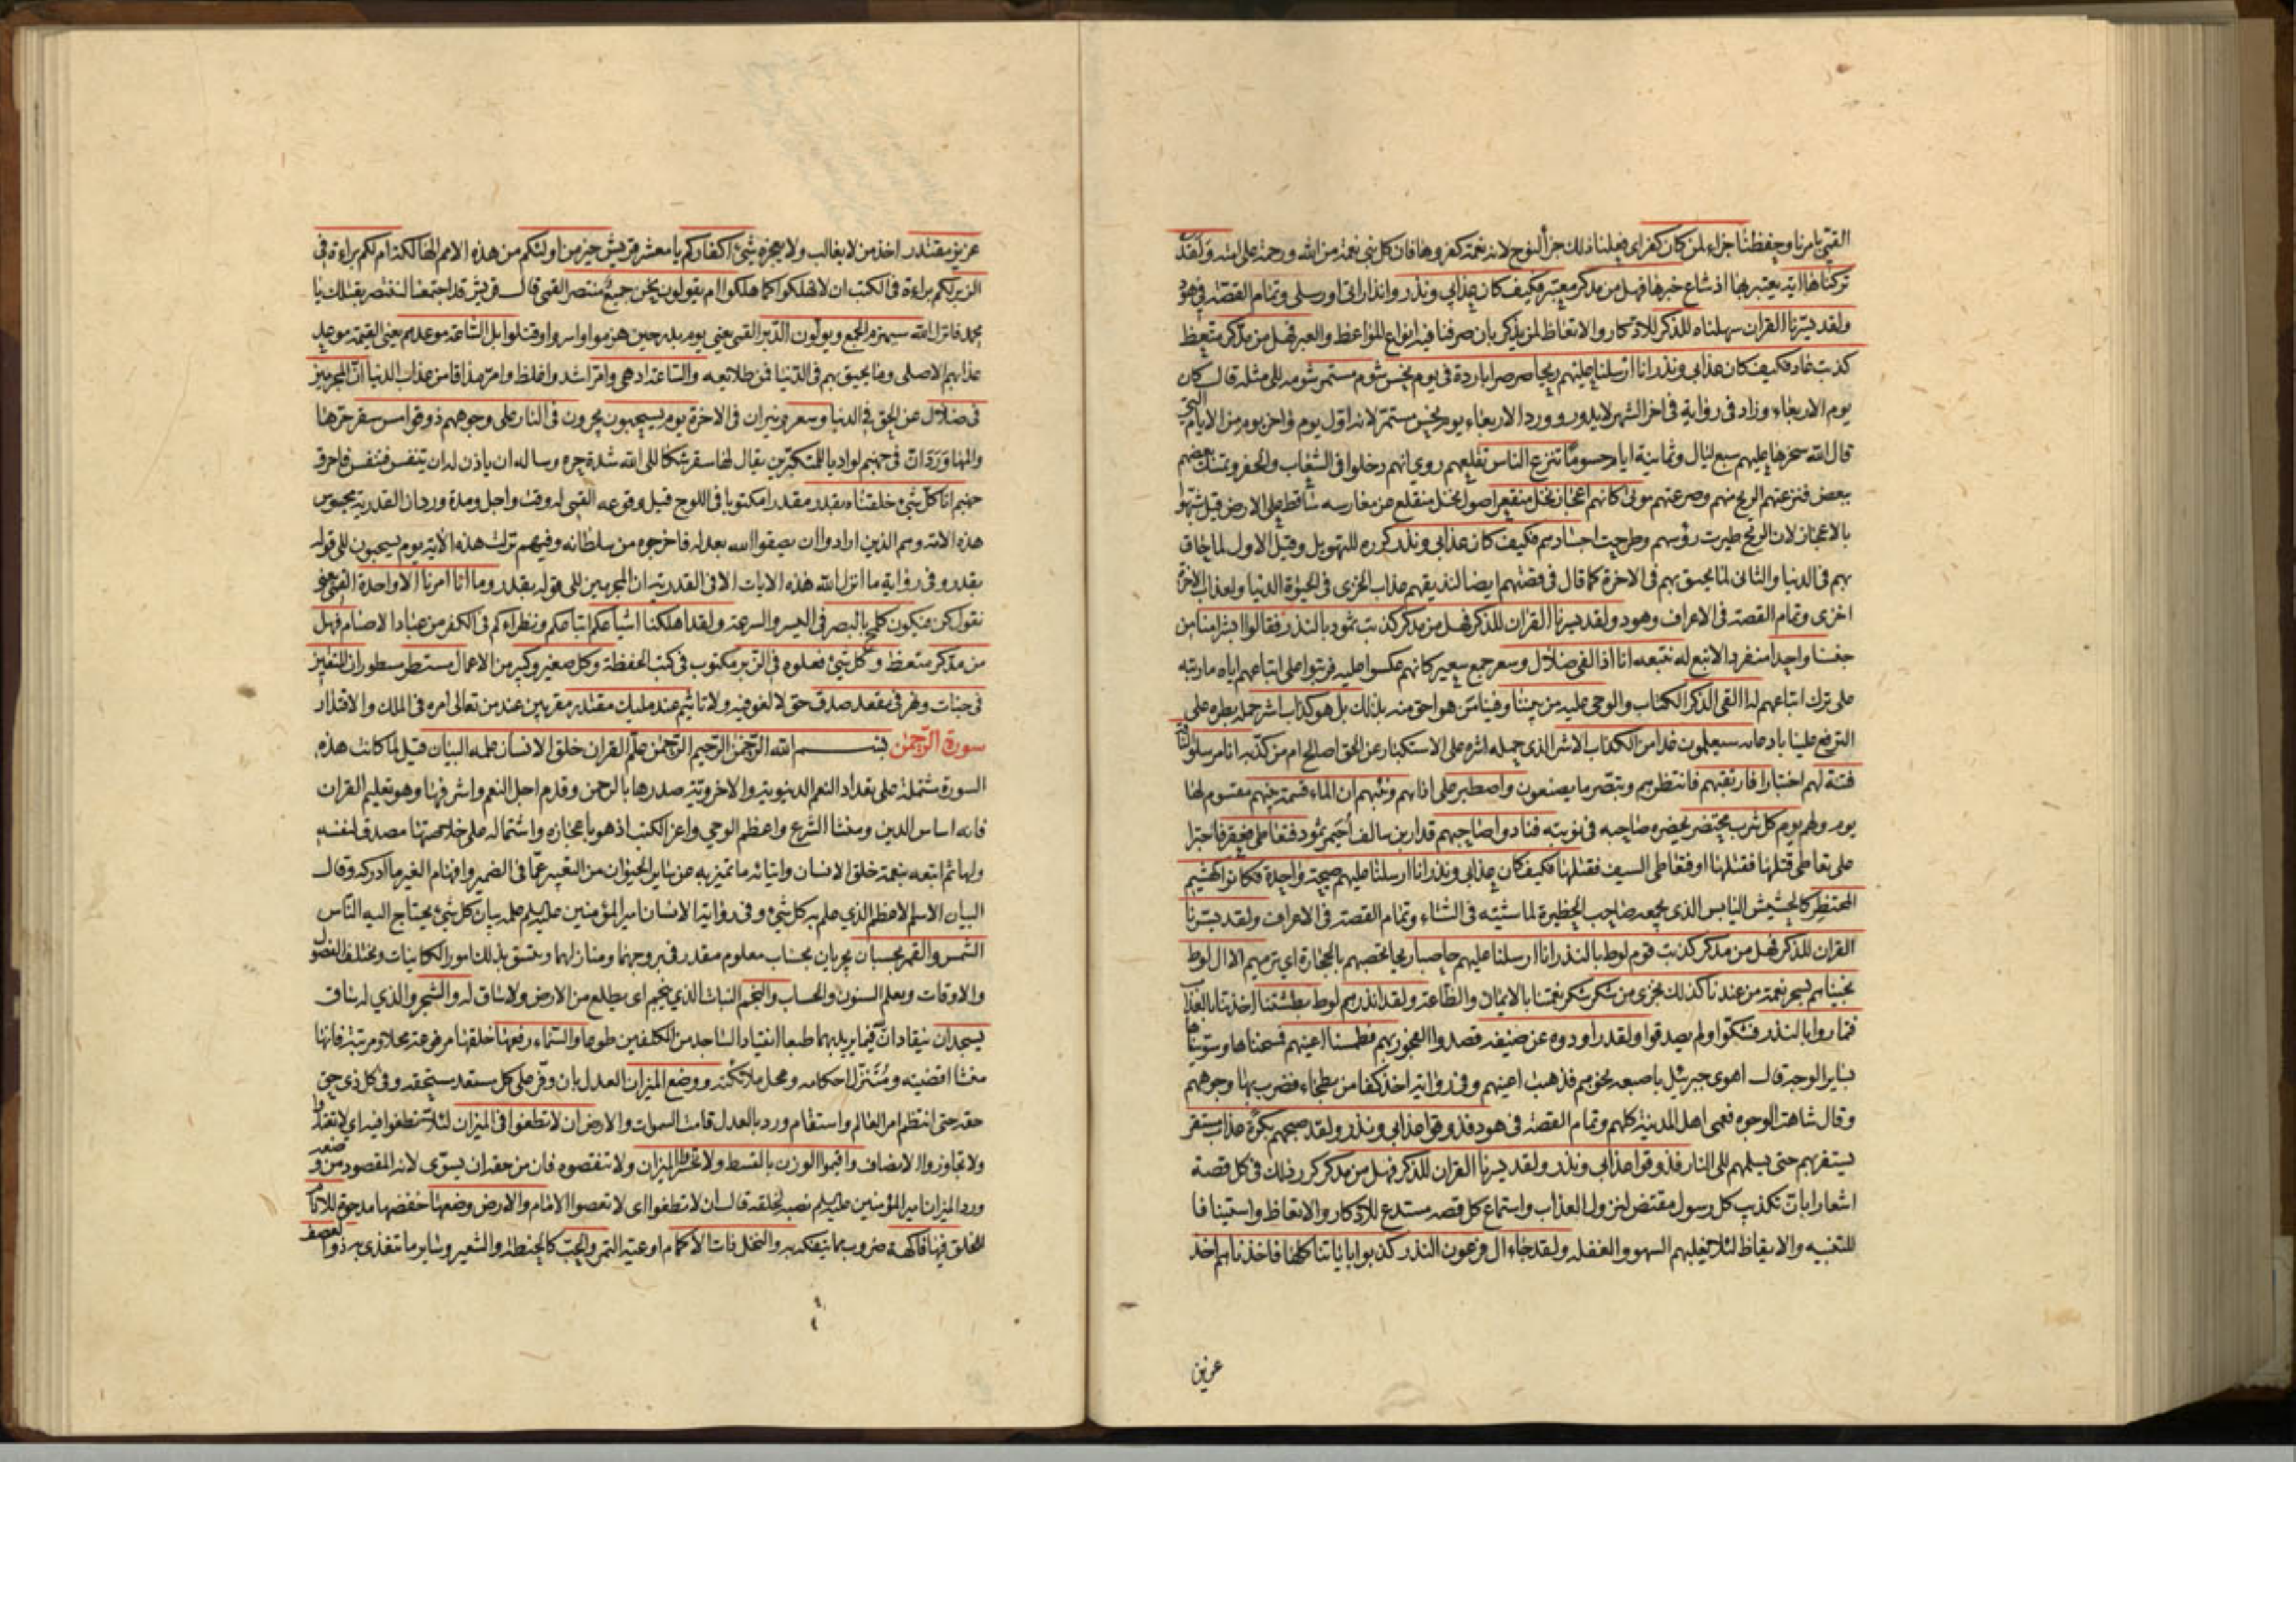 القمي بامرنا وحفظنا جزاء لمن كان كفر اي فعلنا ذلك جزاء لنوح لانه نعمة كفروها فان كل نبي نعمة من الله ورحمة على امته ولقد
تركناها اية يعتبر بها اذ شاع خبرها فهل من مدكر معتبر فكيف كان عذابي ونذر وانذاراتي او رسلي وتمام القصة في هود
ولقد يسرنا القران سهلناه للذكر للادكار والاتعاظ لمن يذكر بان صرفنا فيه انواع المواعظ والعبر فهل من مدكر متعظ
كذبت عاد فكيف كان عذابي ونذر انا ارسلنا عليهم ريحا صرصرا باردة في يوم نحس شوم مستمر شومه الى مثله قال كان
يوم الاربعاء وزاد في رواية في اخر الشهر لا يدور وورد الاربعاء يوم نحس مستمر لانه اول يوم واخر يوم من الايام التي
قال الله سخرها عليهم سبع ليال وثمانية ايام حسوما تنزع الناس تقلعهم روي انهم دخلوا في الشعاب والحفر وتمسك بعضهم
ببعض فنزعتهم الريح منهم وصرعتهم موتى كانهم اعجاز نخل منقعر اصول نخل منقلع عن مغارسه ساقط على الارض قيل شبهوا
بالاعجاز لان الريح طيرت رؤسهم وطرحت اجسادهم فكيف كان عذابي ونذر كرره للتهويل وقيل الاول لما حاق
بهم في الدنيا والثاني لما يحيق بهم في الاخرة كما قال في قصتهم ايضا لنذيقهم عذاب الخزي في الحيوة الدنيا ولعذاب الاخرة
اخزى وتمام القصة في الاعراف وهود ولقد يسرنا القران للذكر فهل من مدكر كذبت ثمود بالنذر فقالوا ابشرا منا من
جنسنا واحدا منفردا لا تبع له نتبعه انا اذا لفي ضلال وسعر جمع سعير كانهم عكسوا عليه فرتبوا على اتباعهم اياه ما رتبه
على ترك اتباعهم له االقي الذكر الكتاب والوحي عليه من بيننا وفينا من هو احق منه بذلك بل هو كذاب اشر حمله بطره على
الترفع علينا بادعائه سيعلمون غدا من الكذاب الاشر الذي حمله اشره على الاستكبار عن الحق اصالح ام من كذبه انا مرسلوا الناقة
فتنة لهم اختبارا فارتقبهم فانتظرهم وتبصر ما يصنعون واصطبر على اذاهم ونبئهم ان الماء قسمة بينهم مقسوم لها
يوم ولهم يوم كل شرب محتضر يحضره صاحبه في نوبته فنادوا صاحبهم قدار بن سالف احيمر ثمود فتعاطى فعقر فاجترا
على تعاطي قتلها فقتلها او فتعاطى السيف فقتلها فكيف كان عذابي ونذر انا ارسلنا عليهم صيحة واحدة فكانوا كهشيم
المحتظر كالحشيش اليابس الذي يجمعه صاحب الحظيرة لماشيته في الشتاء وتمام القصة في الاعراف ولقد يسرنا
القران للذكر فهل من مدكر كذبت قوم لوط بالنذر انا ارسلنا عليهم حاصبا ريحا تحصبهم بالحجارة اي ترميهم الا ال لوط
نجيناهم بسحر نعمة من عندنا كذلك نجزي من شكر شكر نعمتنا بالايمان والطاعة ولقد انذرهم لوط بطشتنا اخذتنا بالعذاب
فتماروا بالنذر فشكوا ولم يصدقوا ولقد راودوه عن ضيفه قصدوا الفجور بهم فطمسنا اعينهم فمسحناها وسويناها
بساير الوجه قال اهوى جبرئيل باصبعه نحوهم فذهبت اعينهم وفي رواية اخذ كفا من بطحاء فضرب بها وجوههم
وقال شاهت الوجوه فعمي اهل المدينة كلهم وتمام القصة في هود فذوقوا عذابي ونذر ولقد صبحهم بكرة عذاب مستقر
يستقر بهم حتى يسلمهم الى النار فذوقوا عذابي ونذر ولقد يسرنا القران للذكر فهل من مدكر كرر ذلك في كل قصة
اشعارا بان تكذيب كل رسول مقتض لنزول العذاب واستماع كل قصة مستدع للادكار والاتعاظ واستينافا
للتنبيه والايقاظ لئلا يغلبهم السهو والغفلة ولقد جاء ال فرعون النذر كذبوا باياتنا كلها فاخذناهم اخذ
عزيز
عزيز مقتدر اخذ من لا يغالب ولا يعجزه شيئ اكفاركم يا معشر قريش خير من اولئكم من هذه الامم الهالكة ام لكم براءة في
الزبر لكم براءة في الكتب ان لا تهلكوا كما هلكوا ام يقولون نحن جميع منتصر القمي قال قريش قد اجتمعنا لننتصر بقتلك يا
محمد فانزل الله سيهزم الجمع ويولون الدبر القمي يعني يوم بدر حين هزموا واسروا وقتلوا بل الساعة موعدهم يعني القيمة موعد
عذابهم الاصلي وما يحيق بهم في الدنيا فمن طلائعه والساعة ادهى وامر اشد واغلظ وامر مذاقا من عذاب الدنيا ان المجرمين
في ضلال عن الحق في الدنيا وسعر ونيران في الاخرة يوم يسحبون يجرون في النار على وجوههم ذوقوا مس سقر حرها
والمها وورد ان في جهنم لواديا للمتكبرين يقال لها سقر شكا الى الله شدة حره وساله ان ياذن له ان يتنفس فتنفس فاحرق
جهنم انا كل شيئ خلقناه بقدر مقدرا مكتوبا في اللوح قبل وقوعه القمي له وقت واجل ومدة ورد ان القدرية مجوس
هذه الامة وهم الذين ارادوا ان يصفوا الله بعدله فاخرجوه من سلطانه وفيهم نزلت هذه الاية يوم يسحبون الى قوله
بقدر وفي رواية ما انزل الله هذه الايات الا في القدرية ان المجرمين الى قوله بقدر وما امرنا الا واحدة القمي يعني
نقول كن فيكون كلمح بالبصر في اليسر والسرعة ولقد اهلكنا اشياعكم اتباعكم ونظراءكم في الكفر من عباد الاصنام فهل
من مدكر متعظ وكل شيئ فعلوه في الزبر مكتوب في كتب الحفظة وكل صغير وكبير من الاعمال مستطر مسطور ان المتقين
في جنات ونهر في مقعد صدق حق لا لغو فيه ولا تاثيم عند مليك مقتدر مقربين عند من تعالى امره في الملك والاقتدار
سورة الرحمن بسم الله الرحمن الرحيم الرحمن علم القران خلق الانسان علمه البيان قيل لما كانت هذه
السورة مشتملة على تعداد النعم الدنيوية والاخروية صدرها بالرحمن وقدم اجل النعم واشرفها وهو تعليم القران
فانه اساس الدين ومنشا الشرع واعظم الوحي واعز الكتب اذ هو باعجازه واشتماله على خلاصتها مصدق لنفسه
ولها ثم اتبعه بنعمة خلق الانسان وايتائه ما تميز به عن ساير الحيوان من التعبير عما في الضمير وافهام الغير ما ادركه وقال
البيان الاسم الاعظم الذي علم به كل شيئ وفي رواية الانسان امير المؤمنين عليه السلم علمه بيان كل شيئ يحتاج اليه الناس
الشمس والقمر بحسبان يجريان بحساب معلوم مقدر في بروجهما ومنازلهما ويتسق بذلك امور الكاينات ويختلف الفصول
والاوقات ويعلم السنون والحساب والنجم النبات الذي ينجم اي يطلع من الارض ولا ساق له والشجر والذي له ساق
يسجدان ينقادان فيما يريد بهما طبعا انقياد الساجد من المكلفين طوعا والسماء رفعها خلقها مرفوعة محلا ومرتبة فانها
منشا اقضيته ومتنزل احكامه ومحل ملائكته ووضع الميزان العدل بان وفر على كل مستعد مستحقه ووفى كل ذي حق
حقه حتى انتظم امر العالم واستقام ورد بالعدل قامت السموات والارض ان لا تطغوا في الميزان لئلا تطغوا فيه اي لا تعتدوا
ولا تجاوزوا الانصاف واقيموا الوزن بالقسط ولا تخسروا الميزان ولا تنقصوه فان من حقه ان يسوى لانه المقصود من وضعه
ورد الميزان امير المؤمنين عليه السلم نصبه لخلقه قال ان لا تطغوا اي لا تعصوا الامام والارض وضعها خفضها مدحوة للانام
للخلق فيها فاكهة ضروب مما يتفكه به والنخل ذات الاكمام اوعية التمر والحب كالحنطة والشعير وساير ما يتغذى به ذو العصف